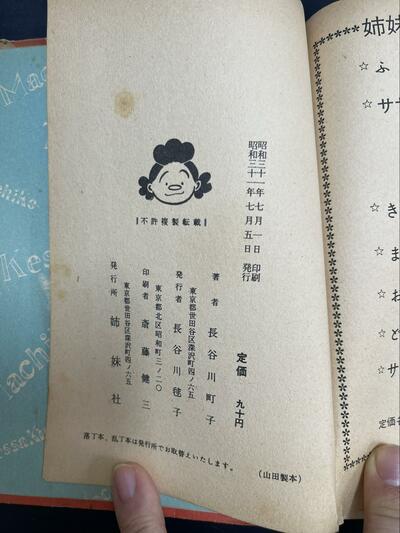 昭和三十一年七月一日 印刷
昭和三十一年七月五日 発行
不許複製転載
定価 九十円
著者 長谷川町子
東京都世田谷区深沢町四ノ六五
発行者 長谷川毬子
東京都北区昭和町二ノ二〇
印刷者 斎藤健三
東京都世田谷区深沢町四ノ六五
発行所 姉妹社
落丁本、乱丁本は発行所でお取替えいたします。
(山田製本)
姉妹
☆ ふ
☆ サ
☆ き
☆ ま
☆ お
☆ ど
☆ サ
定価各
Mac
Kes
achi